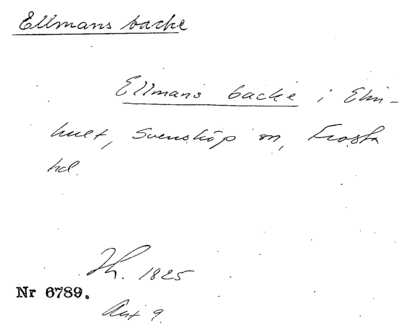 Ellmans backe
Ellmans backe i Elin-
hult, Svensköp sn, Frosta
hd.
Th. 1825
Nr 6789.
Avt 9